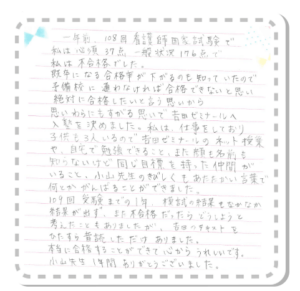 一年前、108回 看護師国家試験で
私は必須37点 一般状況176点で
私は不合格でした。
既卒になる合格率が下がるのも知っていたので
予備校に通わなければ合格できないと思い
絶対に合格したいと言う思いから
思いわらにもすがる思いで吉田ゼミナールへ
入塾を決めました。私は、仕事をしており
子供も3人いるので 吉田ゼミナールのネット授業
や、自宅で勉強できること、また顔も名前も
知らないけど同じ目標を持った仲間が
いること、小山先生のきびしくもあたたかい言葉で
何とかがんばることができました。
109回 受験までの1年、模試の結果もなかなか
結果が出ず、また不合格だったらどうしようと
考えたこともありましたが、
ひたすら音読しただけありました。
本当に合格することができて心からうれしいです。
小山先生 1年間 ありがとうございました。